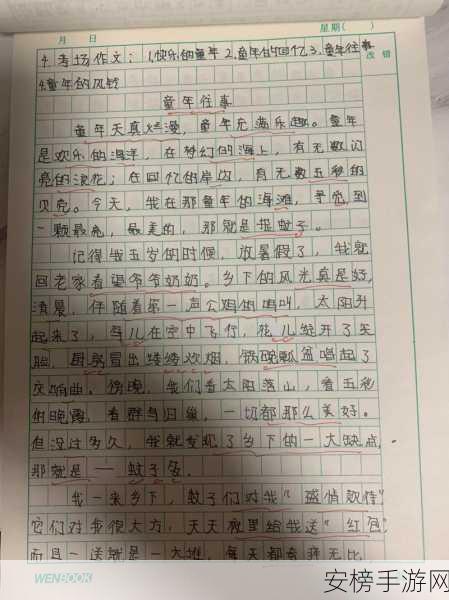 月 日 星期( )
4.考场作文：1.快乐的童年2.童年的回忆3.童年往事
改 错
4.童年的风铃
童年往事
童年天真烂漫，童年充满乐趣。童年
是欢乐的海洋，在梦幻的海上，有无数闪
亮的浪花；在回忆的岸边，有无数五彩的
贝壳。今天，我在那童年的海滩，寻觅到
一颗最亮，最美的，那就是捉蚊子。
记得我五岁的时候，放暑假了，我就
回老家看望爷爷奶奶。乡下的风光真是好，
清晨，伴随着第一声公鸡的鸣叫，太阳升
起来了，鸟儿在空中飞行，花儿绽开了笑
脸，厨房冒出缕缕炊烟，锅碗瓢盆唱起了
交响曲。傍晚，我们看太阳落山，看五彩
的晚霞，看群鸟归巢，一切都那么美好。
但没过多久，我就发现了乡下的一大缺点，
那就是——蚊子多。
我一来乡下，蚊子们对我"盛情款待"
它们对我很大方，天天夜里给我送"红包"
而且一送就是一大堆，每天都奇痒无比，
WENBOOK
安榜手游网